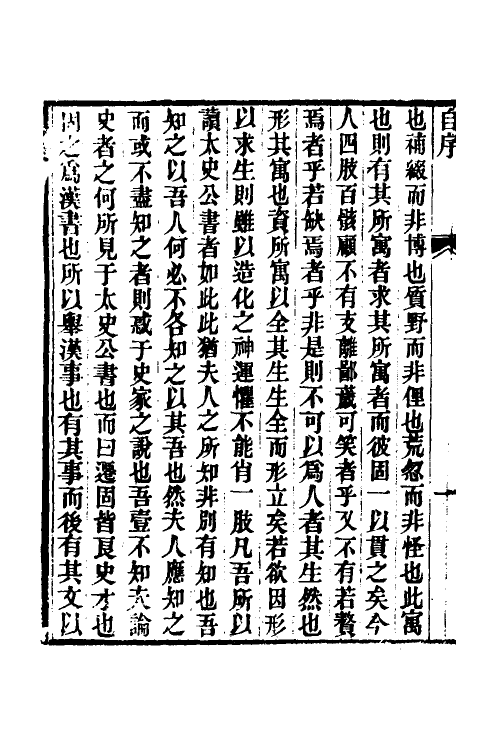 自序
也補綴而非博也質野而非俚也荒忽而非怪也此寓
也則有其所寓者求其所寓者而彼固一以貫之矣今
人四肢百骸顧不有支離鄙薉可笑者乎又不有若贅
焉者乎若缺焉者乎非是則不可以為人者其生然也
形其寓也資所寓以全其生生全而形立矣若欲因形
以求生則雖以造化之神運懼不能肖一肢凡吾所以
讀太史公書者如此此猶夫人之所知非別有知也吾
知之以吾人何必不各知之以其吾也然夫人應知之
而或不盡知之者則惑于史家之說也吾壹不知夫論
史者之何所見于太史公書也而曰遷固皆良史才也
固之為漢書也所以舉漢事也有其事而後有其文以